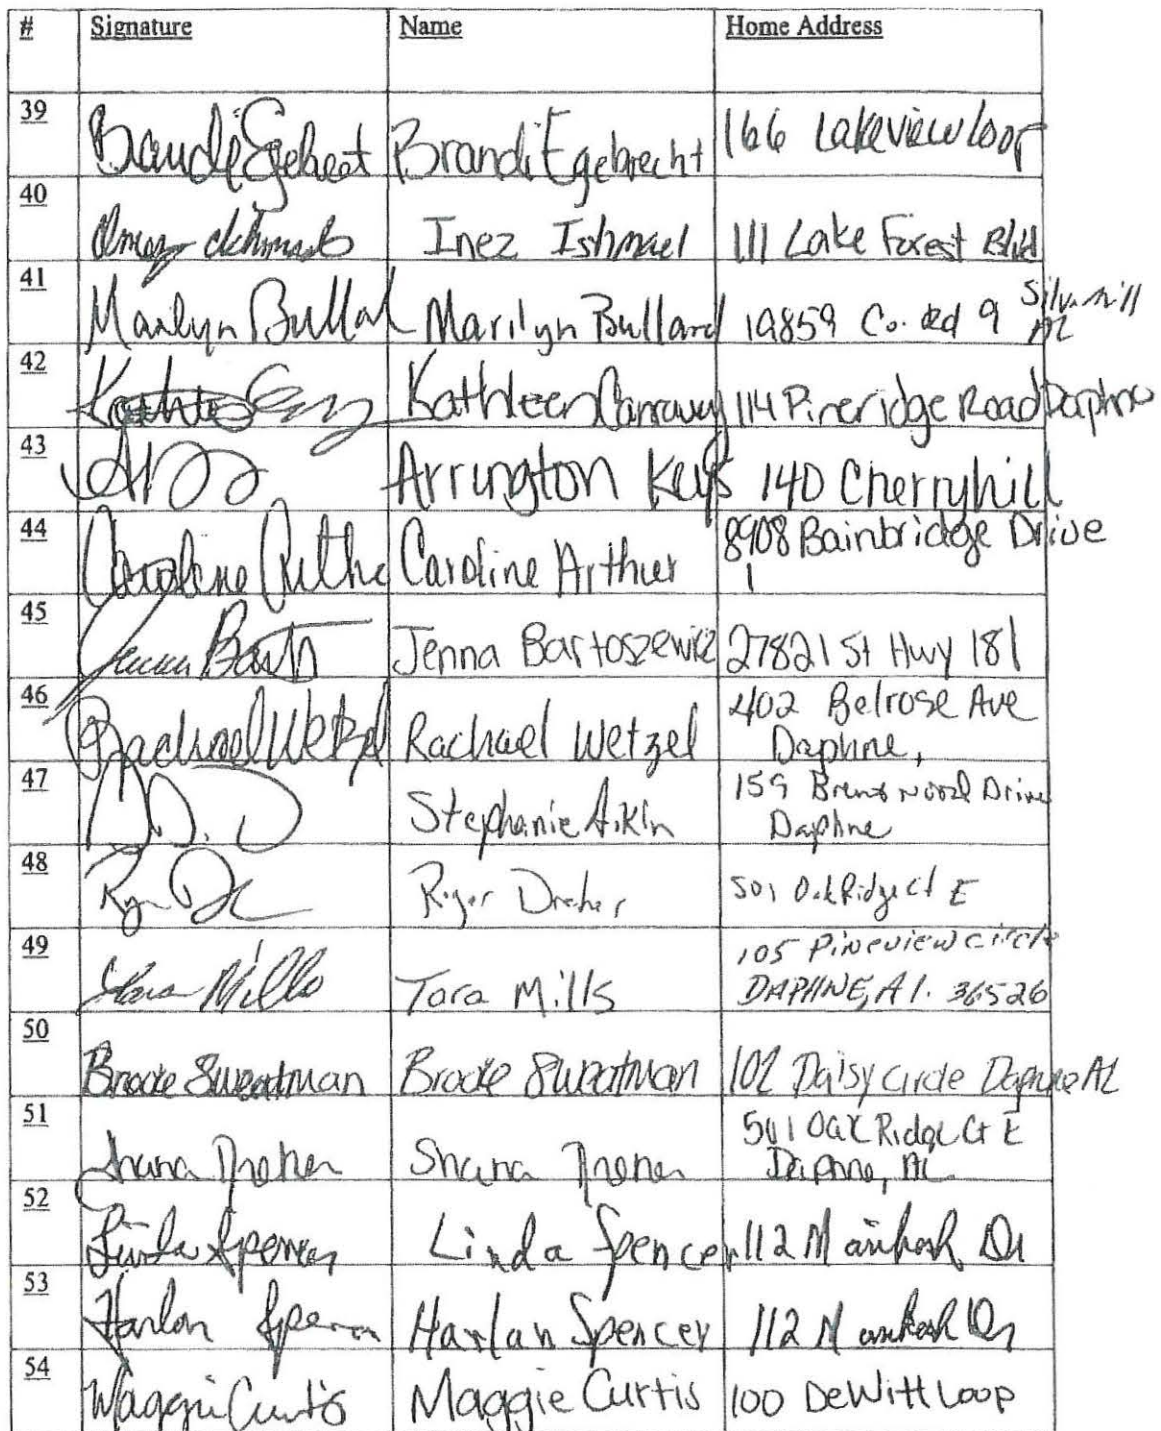 # Signature Name Home Address
39 Brandi Egebrecht Brandi Egebrecht 166 Lakeview Loop
40 Inez Ishmael Inez Ishmael 111 Lake Forest Blvd
41 Marilyn Bullard Marilyn Bullard 19859 Co. Rd 9 Silverhill AL
42 Kathleen 114 Pineridge Road Daphne
43 Arrington Keys 140 Cherryhill
44 Caroline Arthur Caroline Arthur 8908 Bainbridge Drive
45 Jenna Bartoszewicz 27821 St Hwy 181
46 Rachael Wetzel Rachael Wetzel 402 Belrose Ave
Daphne,
47 Stephanie Aikin 159 Drive
Daphne
48 Roger Dreher 501 Oak Ridge Ct E
49 Tara Mills Tara Mills 105 Pineview Circle
DAPHNE, Al. 36526
50 Brooke Sweatman Brooke Sweatman 102 Daisy Circle Daphne AL
51 Shana Dreher Shana Dreher 501 Oak Ridge Ct E
Daphne, AL
52 Linda Spencer Linda Spencer 112 Dr
53 Harlan Spencer Harlan Spencer 112 Dr
54 Maggie Curtis Maggie Curtis 100 DeWitt Loop